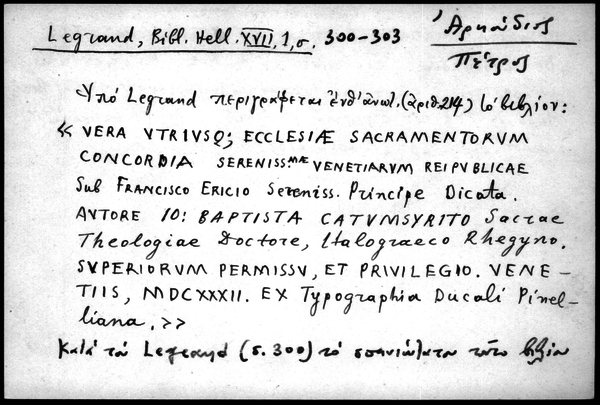 Legrand, Bibl. Hell. XVII, 1, σ. 300-303
Ἀρκάδιος
Πέτρος
Ὑπό Legrand περιγράφεται ἐνθ' ἀνωτ. (ἀριθ. 214) τό βιβλίον:
« VERA VTRIVSQ; ECCLESIÆ SACRAMENTORVM
CONCORDIA SERENISS.MÆ VENETIARVM REIPVBLICAE
Sub FRANCISCO ERICIO Sereniss. Principe Dicata.
AVTORE IO: BAPTISTA CATVMSYRITO Sacrae
Theologiae Doctore, Italograeco Rhegyno.
SVPERIORVM PERMISSV, ET PRIVILEGIO. VENE-
TIIS, MDCXXXII. EX Typographia Ducali Pinel-
liana. >>
Κατά τόν Legrand (σ. 300) τό σπανιώτατον τοῦτο βιβλίον